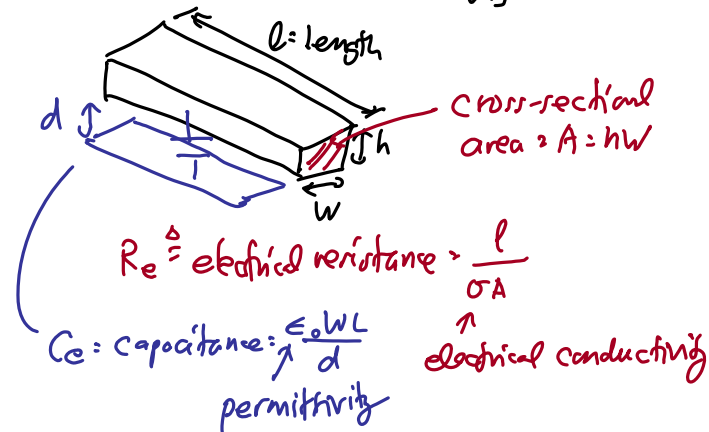 l = length
d
h
W
cross-sectional
area = A = hW
Re ≜ electrical resistance = l / σA
electrical conductivity
Ce = capacitance = ε₀WL / d
permittivity